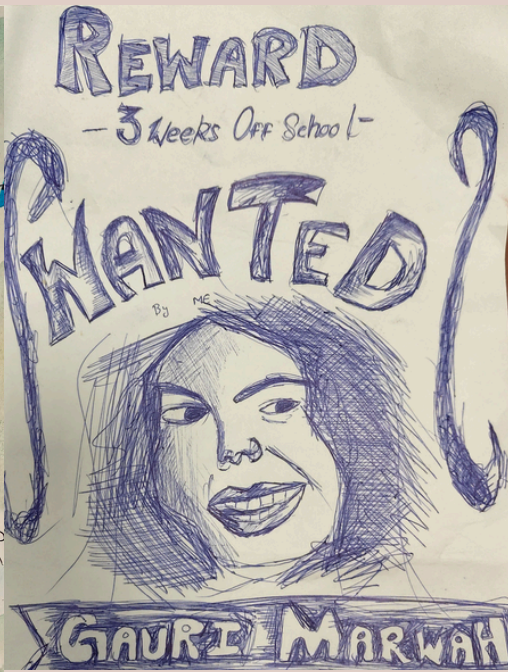 REWARD
- 3 Weeks Off School -
WANTED
By ME
GAURI MARWAH